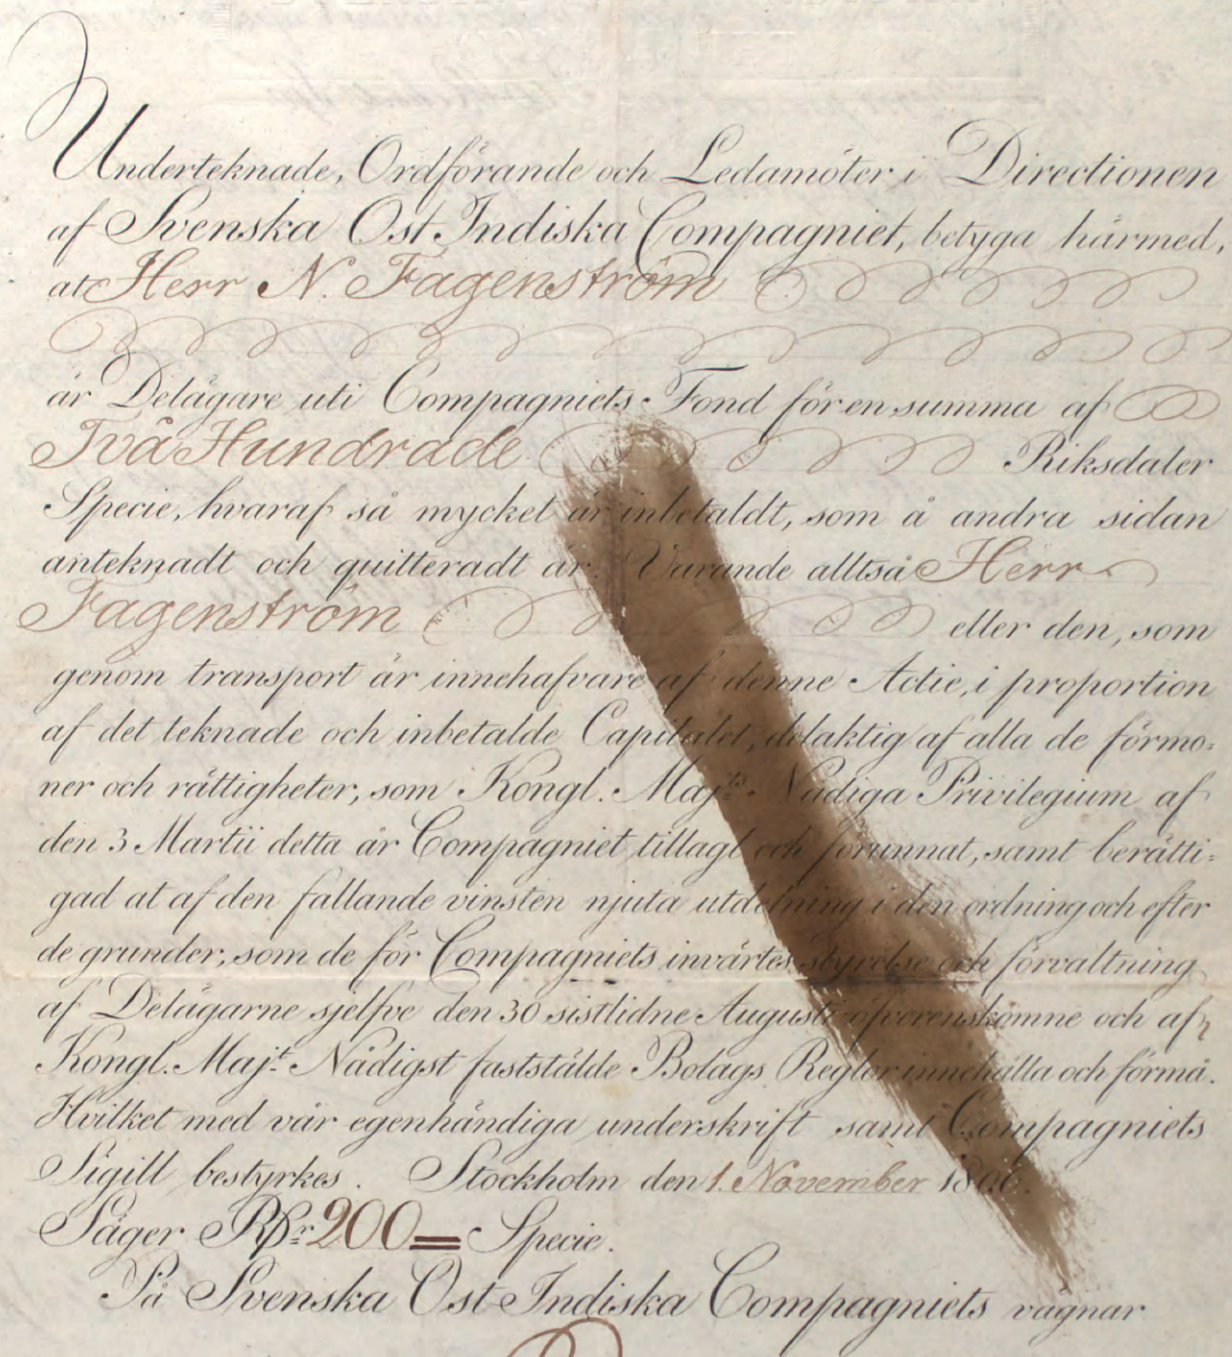 Underteknade, Ordförande och Ledamöter i Directionen
af Svenska Ost Indiska Compagniet, betyga härmed,
at Herr N. Fagenström
är Delägare uti Compagniets Fond för en summa af
Två Hundrade Riksdaler
Specie, hvaraf så mycket är inbetaldt, som å andra sidan
anteknadt och quitteradt är. Varande alltså Herr
Fagenström eller den, som
genom transport är innehafvare af denne Actie, i proportion
af det teknade och inbetalde Capitalet, delaktig af alla de förmo=
ner och rättigheter, som Kongl. Maj:ts Nådiga Privilegium af
den 3 Martii detta år Compagniet tillagt och förunnat, samt berätti=
gad at af den fallande vinsten njuta utdelning i den ordning och efter
de grunder, som de för Compagniets invärtes styrelse och förvaltning
af Delägarne sjelfve den 30 sistlidne Augusti öfverenskomne och af
Kongl. Maj:t Nådigst fastställde Bolags Reglor innehålla och förmå.
Hvilket med vår egenhändiga underskrift samt Compagniets
Sigill bestyrkes. Stockholm den 1. November 1806.
Säger Rdr 200 = Specie.
På Svenska Ost Indiska Compagniets vägnar